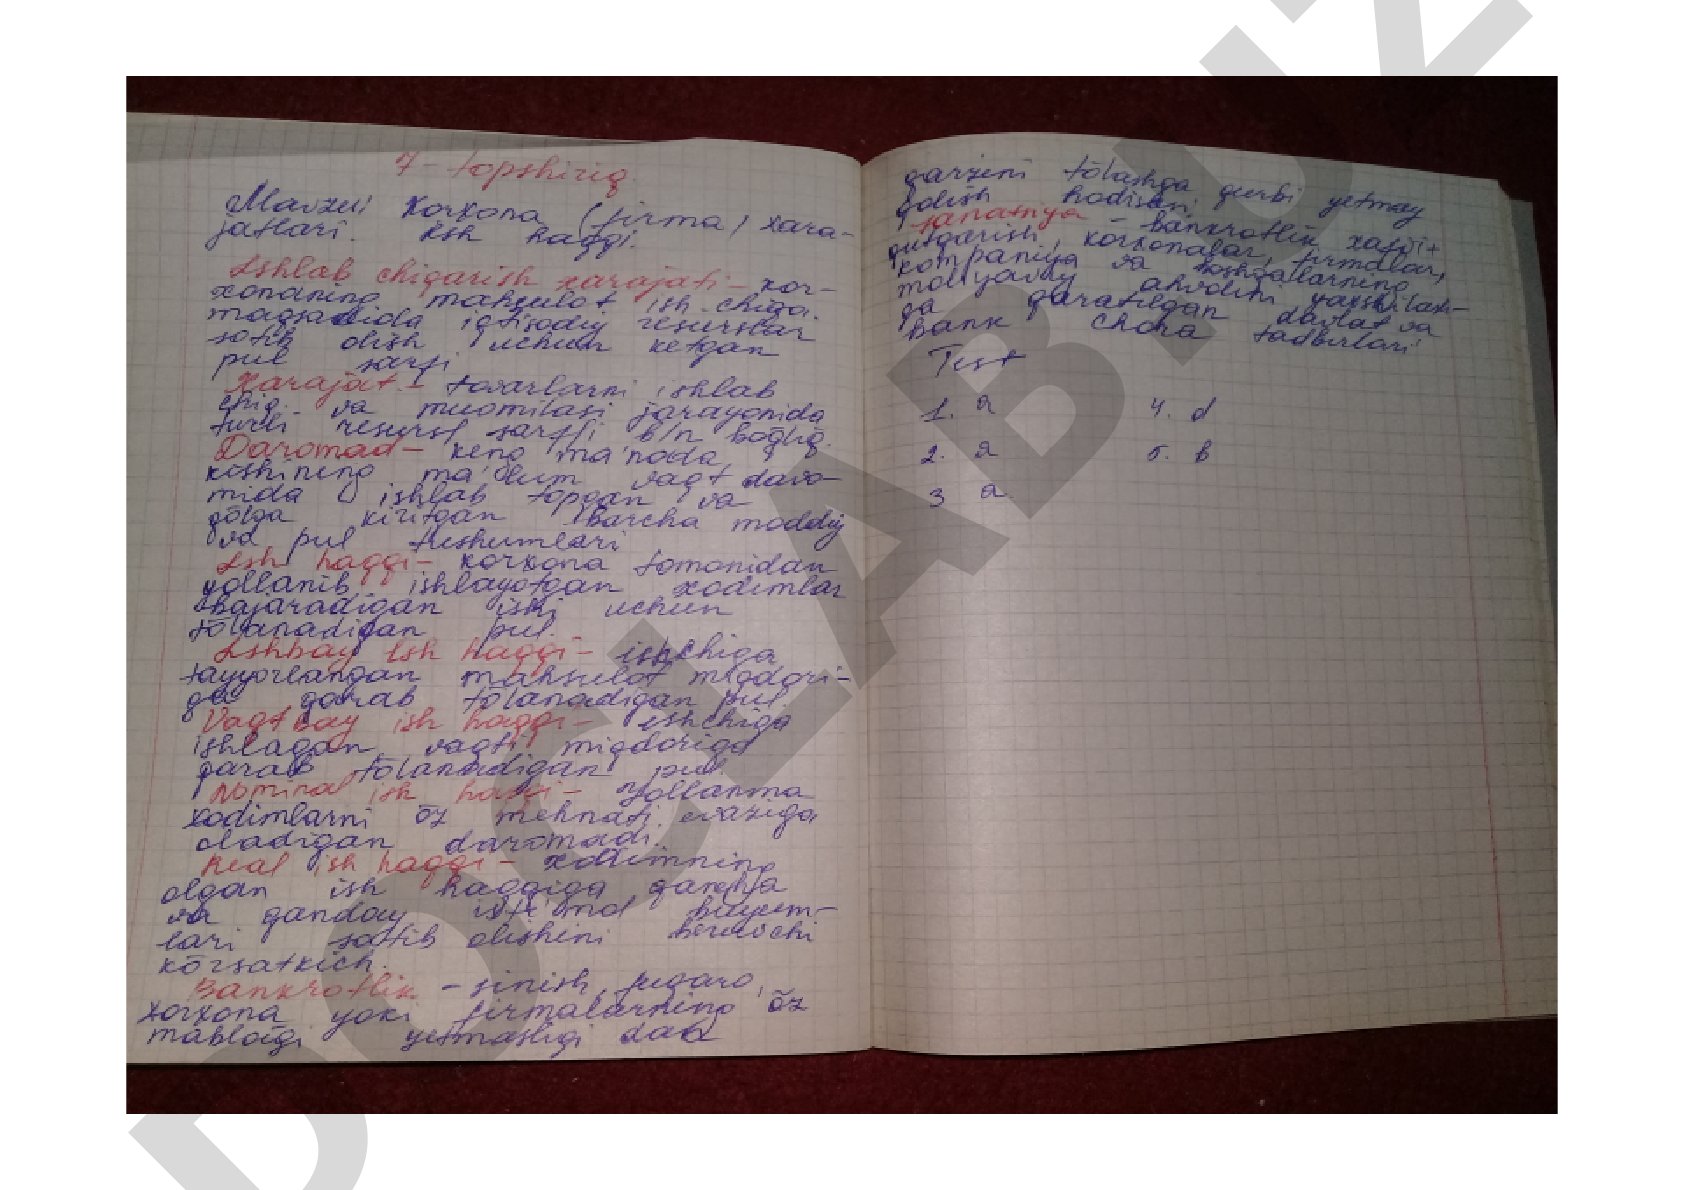 7-topshiriq.
Mavzu: Korxona (firma) xara-
jatlari. Ish haqqi.
Ishlab chiqarish xarajati - kor-
xonaning mahsulot ish. chiqa.
maqsadida iqtisodiy resurslar
sotib olish uchun ketgan
pul sarfi
Xarajat - tovarlarni ishlab
chiq. va muomilasi jarayonida
turli resurst sarfi b/n bog'liq.
Daromad - keng ma'noda
kishining ma'lum vaqt davo-
mida ishlab topgan va
qõlga kiritgan barcha moddiy
va pul tushumlari
Ish haqqi - korxona tomonidan
yollanib ishlayotgan xodimlar
bajaradigan ishi uchun
tõlanadigan pul.
Ishbay ish haqqi - ishchiga
tayyorlangan mahsulot miqdori-
ga qarab tõlanadigan pul.
Vaqtbay ish haqqi - ishchiga
ishlagan vaqti miqdoriga
qarab tõlanadigan pul
Nominal ish haqqi - Yollanma
xodimlarni õz mehnati evaziga
oladigan daromadi.
Real ish haqqi - xodimning
olgan ish haqqiga qancha
va qanday iste'mol buyum-
lari sotib olishini beruvchi
kõrsatkich.
Bankrotlik - sinish, fuqaro,
korxona yoki firmalarning õz
mablag'i yetmasligi
qarzini tõlashga qurbi yetmay
qolish hodisasi
Sanatsiya - bankrotlik xavfi
qutqarish, korxonalar, firmalar,
kompaniya va boshqalarning
moliyaviy ahvolini yaxshilash-
ga qaratilgan davlat va
bank chora tadbirlari
Test
1. a 4. d
2. a 5. b
3 a.
DOCLAB.UZ